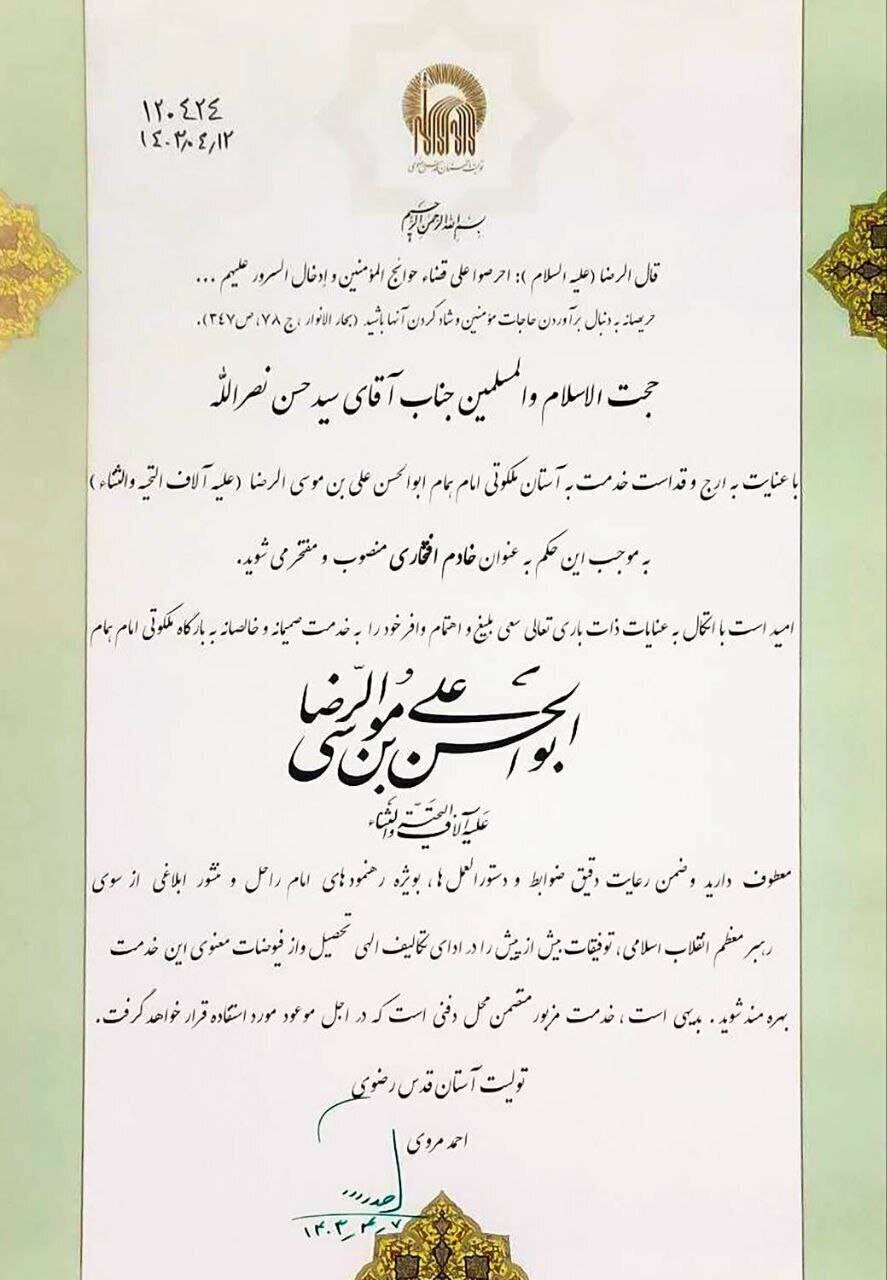 ١٢٠٤٢٤
١٤٠٣٫٠٤٫١٢
تولیت آستان قدس رضوی
بسم الله الرحمن الرحیم
قال الرضا (علیه السلام): احرصوا علی قضاء حوائج المؤمنین و إدخال السرور علیهم ...
حریصانه به دنبال برآوردن حاجات مؤمنین و شاد کردن آنها باشید (بحار الانوار، ج ٧٨، ص ٣٤٧).
حجت الاسلام والمسلمین جناب آقای سید حسن نصرالله
با عنایت به ارج و قداست خدمت به آستان ملکوتی امام همام ابوالحسن علی بن موسی الرضا (علیه آلاف التحیه والثناء)
به موجب این حکم به عنوان خادم افتخاری منصوب و مفتخر می شوید.
امید است با اتکال به عنایات ذات باری تعالی سعی بلیغ و اهتمام وافر خود را به خدمت صمیمانه و خالصانه به بارگاه ملکوتی امام همام
ابوالحسن علی بن موسی الرضا
علیه آلاف التحیة والثناء
معطوف دارید وضمن رعایت دقیق ضوابط و دستورالعمل ها، بویژه رهنمودهای امام راحل و منشور ابلاغی از سوی
رهبر معظم انقلاب اسلامی، توفیقات بیش از پیش را در ادای تکالیف الهی تحصیل واز فیوضات معنوی این خدمت
بهره مند شوید. بدیهی است، خدمت مزبور متضمن محل دفنی است که در اجل موعود مورد استفاده قرار خواهد گرفت.
تولیت آستان قدس رضوی
احمد مروی
١٤٠٣٫٤٫٧